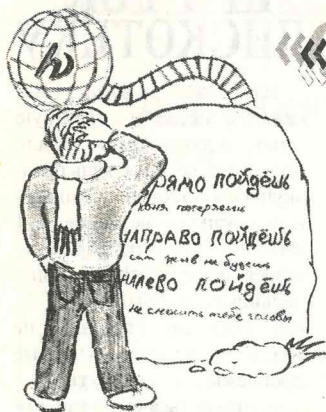 РЯМО ПОЙДЁШЬ
коня потеряешь
НАПРАВО ПОЙДЁШЬ
сам жив не будешь
НАЛЕВО ПОЙДЁШЬ
не сносить тебе головы